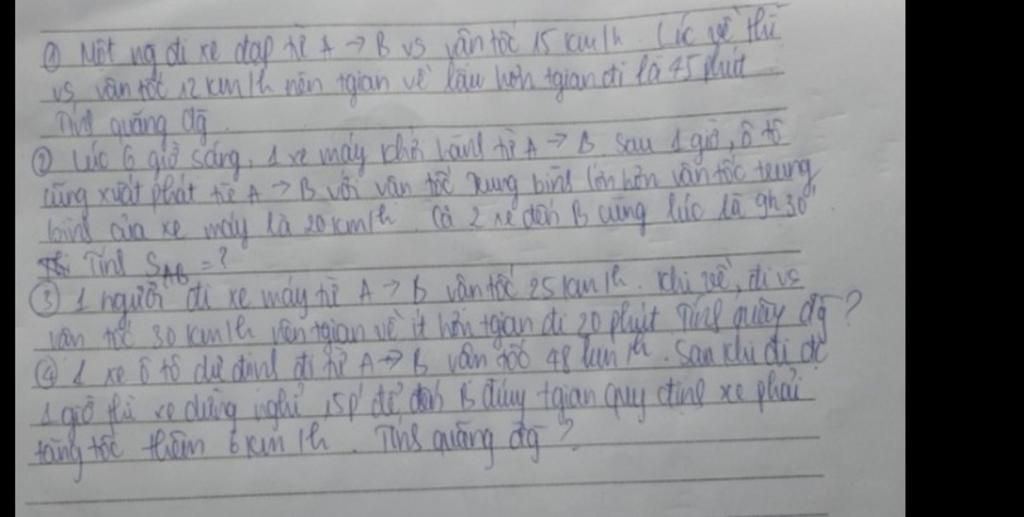 ① Một ng đi xe đạp từ A → B vs vân tốc 15 km/h. Lúc về thì
vs vân tốc 12 km/h nên tgian về lâu hơn tgian đi là 45 phút
Tính quãng đg.
② Lúc 6 giờ sáng, 1 xe máy khởi hành từ A → B sau 1 giờ, ô tô
cũng xuất phát từ A → B với vân tốc trung bình lớn hơn vân tốc trung
bình của xe máy là 20 km/h. Cả 2 xe đến B cùng lúc là 9h30'
Tính S_AB = ?
③ 1 người đi xe máy từ A → B vân tốc 25 km/h. Khi về, đi vs
vân tốc 30 km/h nên tgian về ít hơn tgian đi 20 phút Tính quãng đg?
④ 1 xe ô tô dự định đi từ A → B vân tốc 48 km/h. Sau khi đi đc
1 giờ thì xe dừng nghỉ 15p' để đến B đúng tgian quy định xe phải
tăng tốc thêm 6 km/h. Tính quãng đg?